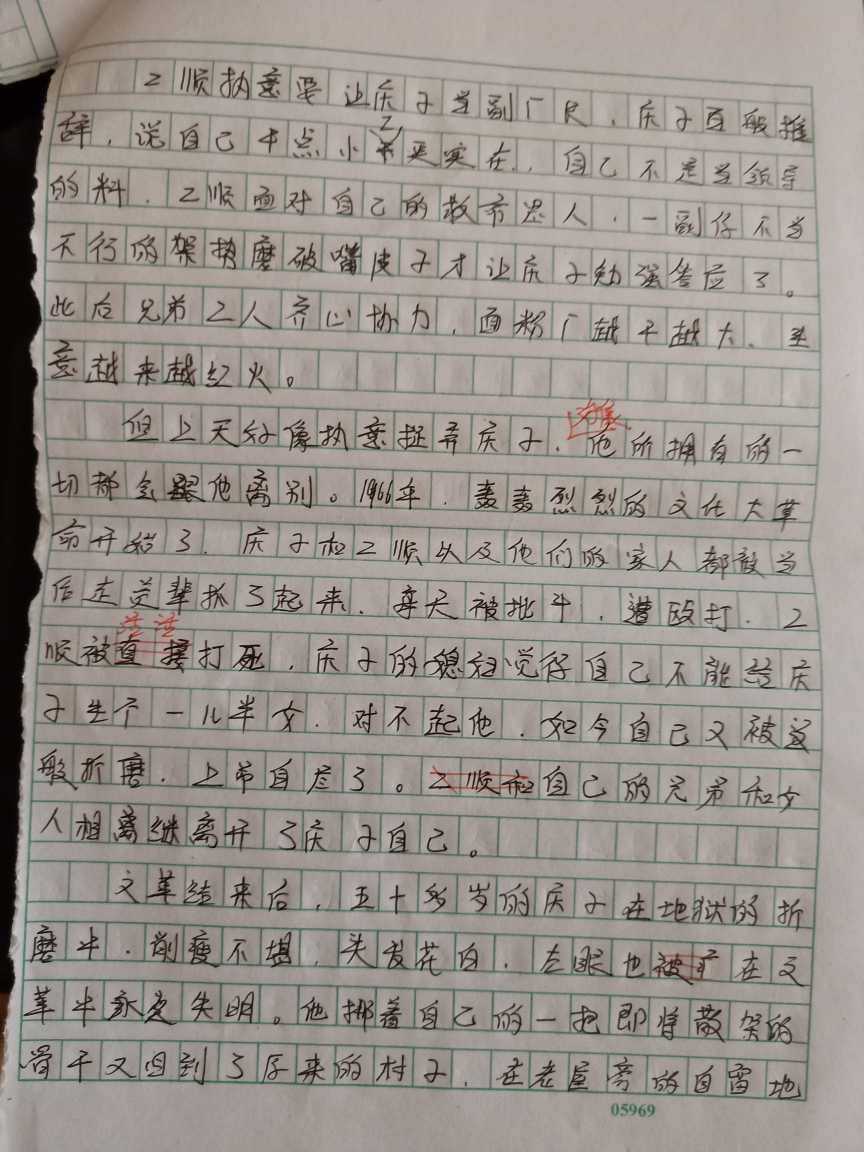 二顺执意要让庆子当副厂长，庆子百般推
辞，说自己干点小工更实在，自己不是当领导
的料，二顺面对自己的救命恩人，一副仔不当
不行的架势磨破嘴皮子才让庆子勉强答应了。
此后兄弟二人齐心协力，面粉厂越干越大，生
意越来越红火。
但上天好像执意捉弄庆子，他所拥有的一
切都会跟他离别。1966年，轰轰烈烈的文化大革
命开始了，庆子和二顺以及他们的家人都被当
作走资辈抓了起来，每天被批斗，遭殴打，二
顺被活活打死，庆子的媳妇觉得自己不能给庆
子生个一儿半女，对不起他，如今自己又被这
般折磨，上吊自尽了。二顺和自己的兄弟和女
人相离继离开了庆子自己。
文革结束后，五十多岁的庆子在地狱的折
磨中，削瘦不堪，头发花白，左眼也被打在文
革中永远失明。他挪着自己的一把即将散架的
骨干又回到了原来的村子，在老屋旁的自留地
05969